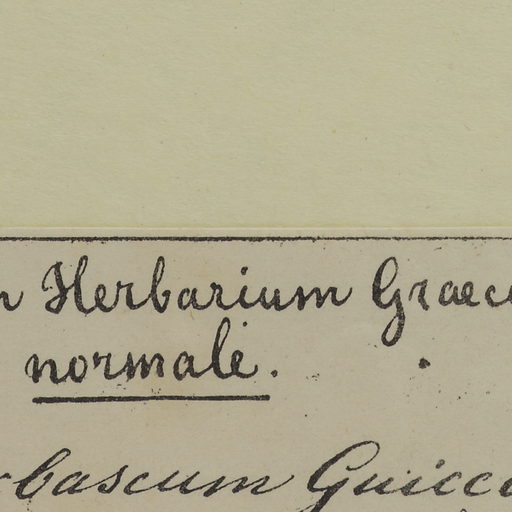 n Herbarium Graec
normale.
rbascum Guicc